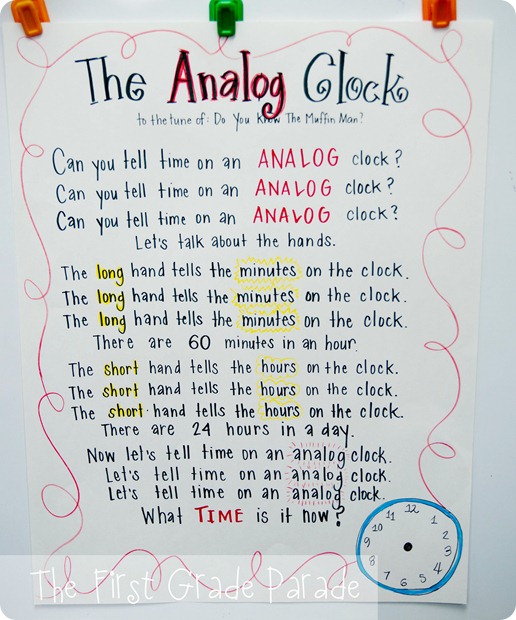 The Analog Clock
to the tune of: Do You Know The Muffin Man?
Can you tell time on an ANALOG clock?
Can you tell time on an ANALOG clock?
Can you tell time on an ANALOG clock?
Let's talk about the hands.
The long hand tells the minutes on the clock.
The long hand tells the minutes on the clock.
The long hand tells the minutes on the clock.
There are 60 minutes in an hour.
The short hand tells the hours on the clock.
The short hand tells the hours on the clock.
The short hand tells the hours on the clock.
There are 24 hours in a day.
Now let's tell time on an analog clock.
Let's tell time on an analog clock.
Let's tell time on an analog clock.
What TIME is it now?
12
11 1
10 2
9 3
8 4
7 6 5
The First Grade Parade